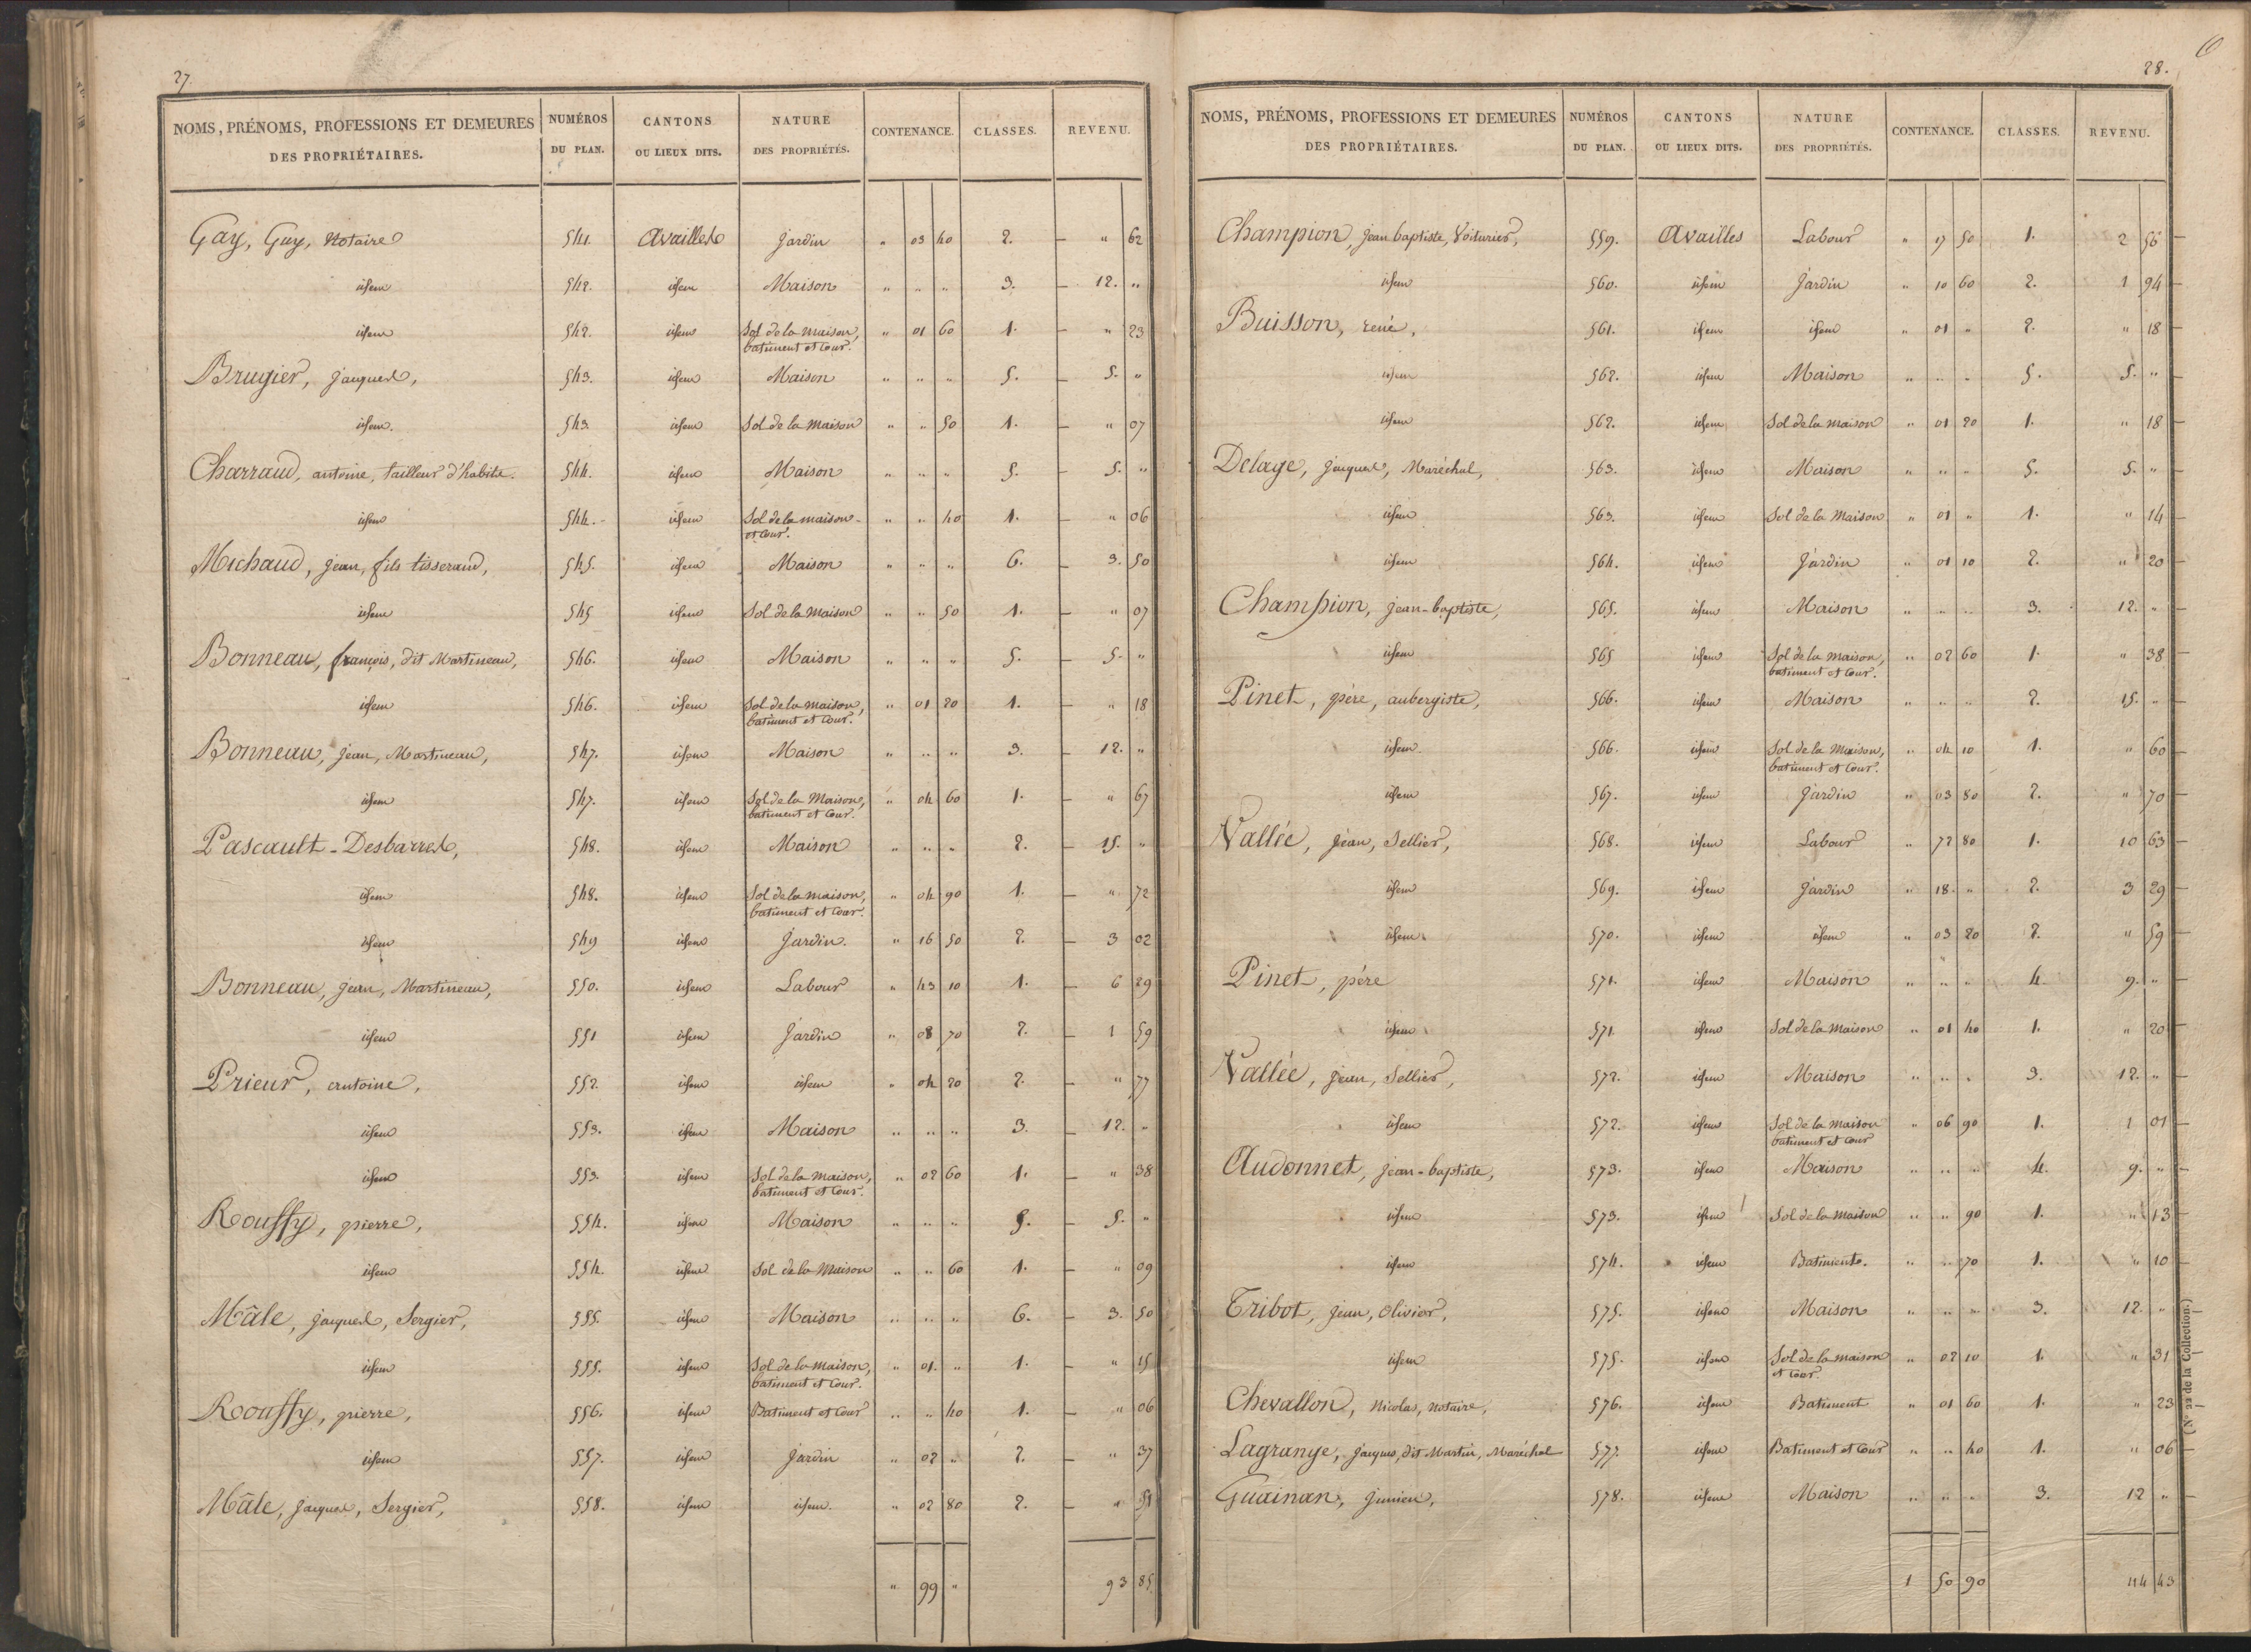 27.
NOMS, PRÉNOMS, PROFESSIONS ET DEMEURES DES PROPRIÉTAIRES. | NUMÉROS DU PLAN. | CANTONS OU LIEUX DITS. | NATURE DES PROPRIÉTÉS. | CONTENANCE. | CLASSES. | REVENU.
Gay, Guy, Notaire 541. Availles Jardin " 03 40 2. " 62
idem 542. idem Maison " " " 3. 12. "
idem 542. idem Sol de la maison, batiment et Cour. " 01 60 1. " 23
Brugier, Jacques, 543. idem Maison " " " 5. 5. "
idem. 543 idem Sol de la maison " " 50 1. " 07
Charraud, antoine, tailleur d'habits. 544. idem Maison " " " 5. 5. "
idem 544. idem Sol de la maison et Cour. " " 40 1. " 06
Michaud, Jean, fils tisserand, 545. idem Maison " " " 6. 3. 50
idem 545 idem Sol de la maison " " 50 1. " 07
Bonneau, françois, dit Martineau, 546. idem Maison " " " 5. 5. "
idem 546. idem Sol de la maison, batiment et Cour. " 01 20 1. " 18
Bonneau, Jean, Martineau, 547. idem Maison " " " 3. 12. "
idem 547. idem Sol de la Maison, batiment et Cour. " 04 60 1. " 67
Pascault-Desbarres, 548. idem Maison " " " 2. 15. "
idem 548. idem Sol de la maison, batiment et Cour. " 04 90 1. " 72
idem 549 idem Jardin. " 16 50 2. 3 02
Bonneau, Jean, Martineau, 550. idem Labour " 43 10 1. 6 29
idem 551 idem Jardin " 08 70 2. 1 59
Prieur, antoine, 552. idem idem " 04 20 2. " 77
idem 553. idem Maison " " " 3. 12. "
idem 553. idem Sol de la maison, batiment et Cour. " 02 60 1. " 38
Rouffy, pierre, 554. idem Maison " " " 5. 5. "
idem 554. idem Sol de la Maison " " 60 1. " 09
Mâle, Jacques, Sergier, 555. idem Maison " " " 6. 3. 50
idem 555. idem Sol de la maison, batiment et Cour. " 01. " 1. " 15
Rouffy, pierre, 556. idem Batiment et Cour " " 40 1. " 06
idem 557. idem Jardin " 02 " 2. " 37
Mâle, Jacques, Sergier, 558. idem idem. " 02 80 2. " 51
" 99 " 93 85
28.
NOMS, PRÉNOMS, PROFESSIONS ET DEMEURES DES PROPRIÉTAIRES. | NUMÉROS DU PLAN. | CANTONS OU LIEUX DITS. | NATURE DES PROPRIÉTÉS. | CONTENANCE. | CLASSES. | REVENU.
Champion, Jean baptiste, Voiturier, 559. Availles Labour " 17 50 1. 2 56
idem 560. idem Jardin " 10 60 2. 1 94
Buisson, rené, 561. idem idem " 01 " 2. " 18
idem 562. idem Maison " " " 5. 5. "
idem 562. idem Sol de la maison " 01 20 1. " 18
Delage, Jacques, Maréchal, 563. idem Maison " " " 5. 5. "
idem 563. idem Sol de la Maison " 01 " 1. " 14
idem 564. idem Jardin " 01 10 2. " 20
Champion, Jean-baptiste, 565. idem Maison " " " 3. 12. "
idem 565 idem Sol de la maison, batiment et Cour. " 02 60 1. " 38
Pinet, père, aubergiste, 566. idem Maison " " " 2. 15. "
idem 566. idem Sol de la Maison, batiment et Cour. " 04 10 1. " 60
idem 567. idem Jardin " 03 80 2. " 70
Vallée, Jean, Sellier, 568. idem Labour " 72 80 1. 10 63
idem 569. idem Jardin " 18. " 2. 3 29
idem 570. idem idem " 03 20 2. " 59
Pinet, père 571. idem Maison " " " 4. 9. "
idem 571. idem Sol de la Maison " 01 40 1. " 20
Vallée, Jean, Sellier, 572. idem Maison " " " 3. 12. "
idem 572. idem Sol de la maison batiment et Cour " 06 90 1. 1 01
Audonnet, Jean-baptiste, 573. idem Maison " " " 4. 9. "
idem 573. idem Sol de la maison " " 90 1. " 13
idem 574. idem Batiments. " " 70 1. " 10
Tribot, Jean, Olivier, 575. idem Maison " " " 3. 12. "
idem 575. idem Sol de la maison et Cour. " 02 10 1. " 31
Chevallon, Nicolas, notaire, 576. idem Batiment " 01 60 1. " 23
Lagrange, Jacques, dit Martin, Maréchal 577. idem Batiment et Cour " " 40 1. " 06
Guainan, Junien, 578. idem Maison " " " 3. 12 "
1 50 90 114 43
(N° 22 de la Collection.)